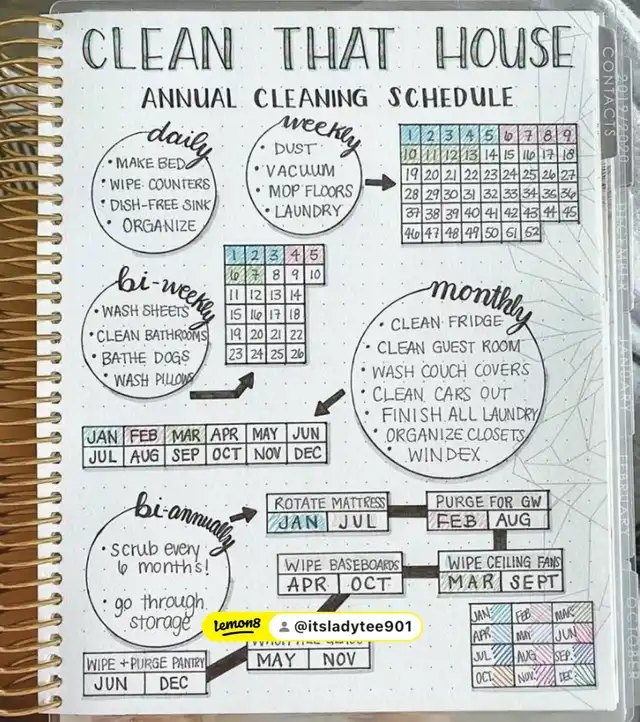 CLEAN THAT HOUSE
ANNUAL CLEANING SCHEDULE
daily
• MAKE BED
• WIPE COUNTERS
• DISH-FREE SINK
• ORGANIZE
weekly
• DUST
• VACUUM
• MOP FLOORS
• LAUNDRY
1 2 3 4 5 6 7 8 9
10 11 12 13 14 15 16 17 18
19 20 21 22 23 24 25 26 27
28 29 30 31 32 33 34 35 36
37 38 39 40 41 42 43 44 45
46 47 48 49 50 51 52
bi-weekly
• WASH SHEETS
• CLEAN BATHROOMS
• BATHE DOGS
• WASH PILLOWS
1 2 3 4 5
6 7 8 9 10
11 12 13 14
15 16 17 18
19 20 21 22
23 24 25 26
monthly
• CLEAN FRIDGE
• CLEAN GUEST ROOM
• WASH COUCH COVERS
• CLEAN CARS OUT
• FINISH ALL LAUNDRY
• ORGANIZE CLOSETS
• WINDEX
JAN FEB MAR APR MAY JUN
JUL AUG SEP OCT NOV DEC
bi-annually
• scrub every
6 months!
• go through
storage
ROTATE MATTRESS
JAN JUL
PURGE FOR GW
FEB AUG
WIPE BASEBOARDS
APR OCT
WIPE CEILING FANS
MAR SEPT
MAY NOV
WIPE + PURGE PANTRY
JUN DEC
JAN FEB MAR
APR MAY JUN
JUL AUG SEP
OCT NOV DEC
lemon8 @itsladytee901
CONTACTS
2019/2020
FEBRUARY